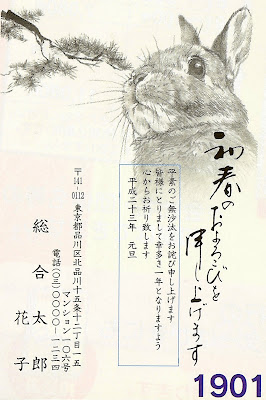 初春の
およろこびを
申し上げます
平素のご無沙汰をお詫び申し上げます
皆様にとりまして幸多き一年となりますよう
心からお祈り致します
平成二十三年 元旦
〒141-0112
東京都品川区北品川十五条十二丁目一五
マンション一〇六号
電話(〇三)〇〇〇〇-一二三四
総合太郎
花子
1901